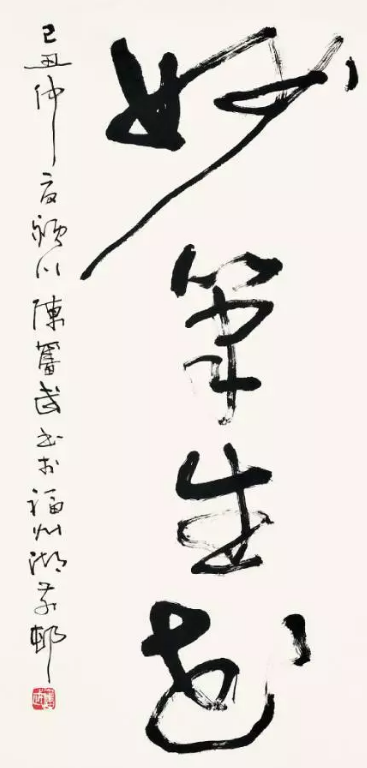 妙筆生花
己丑仲夏潁川陳奮武書於福州湖前邨